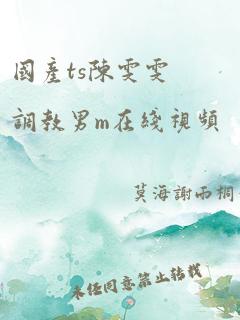 國產ts陳雯雯
調教男m在綫視頻
莫海謝雨桐
未经同意禁止转载